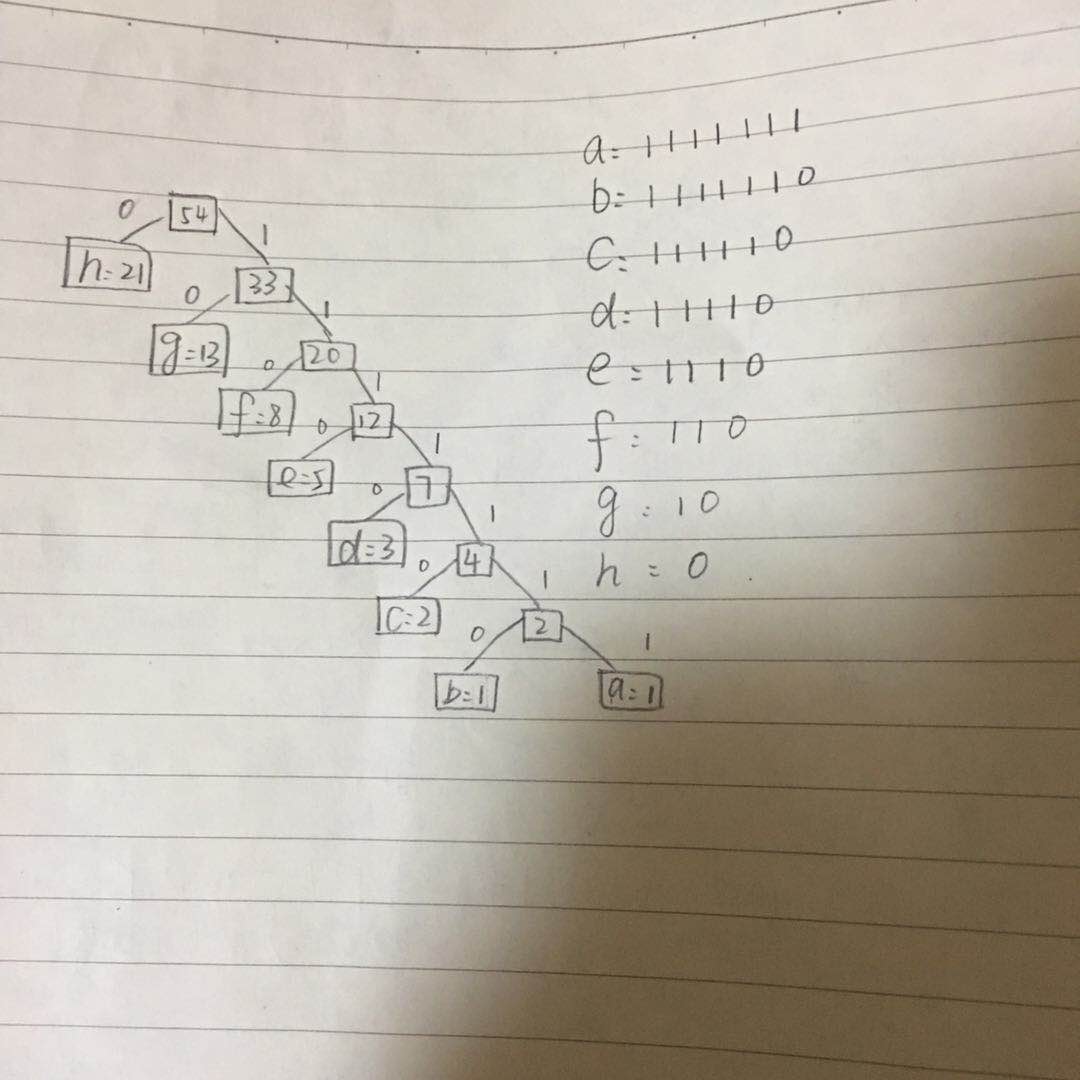 0 54 1
h=21 33
0 1
g=13 0 20 1
f=8 0 12 1
e=5 0 7 1
d=3 0 4 1
c=2 0 2 1
b=1 a=1
a=1111111
b=1111110
c=111110
d=11110
e=1110
f=110
g=10
h=0